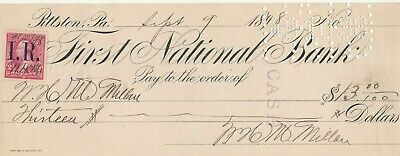 Pittston, Pa. Sept 9 1898 No.
I. R.
First National Bank
Pay to the order of
W. H. McMillan $13.00/100
Thirteen & Dollars
CASH
W. H. McMillan